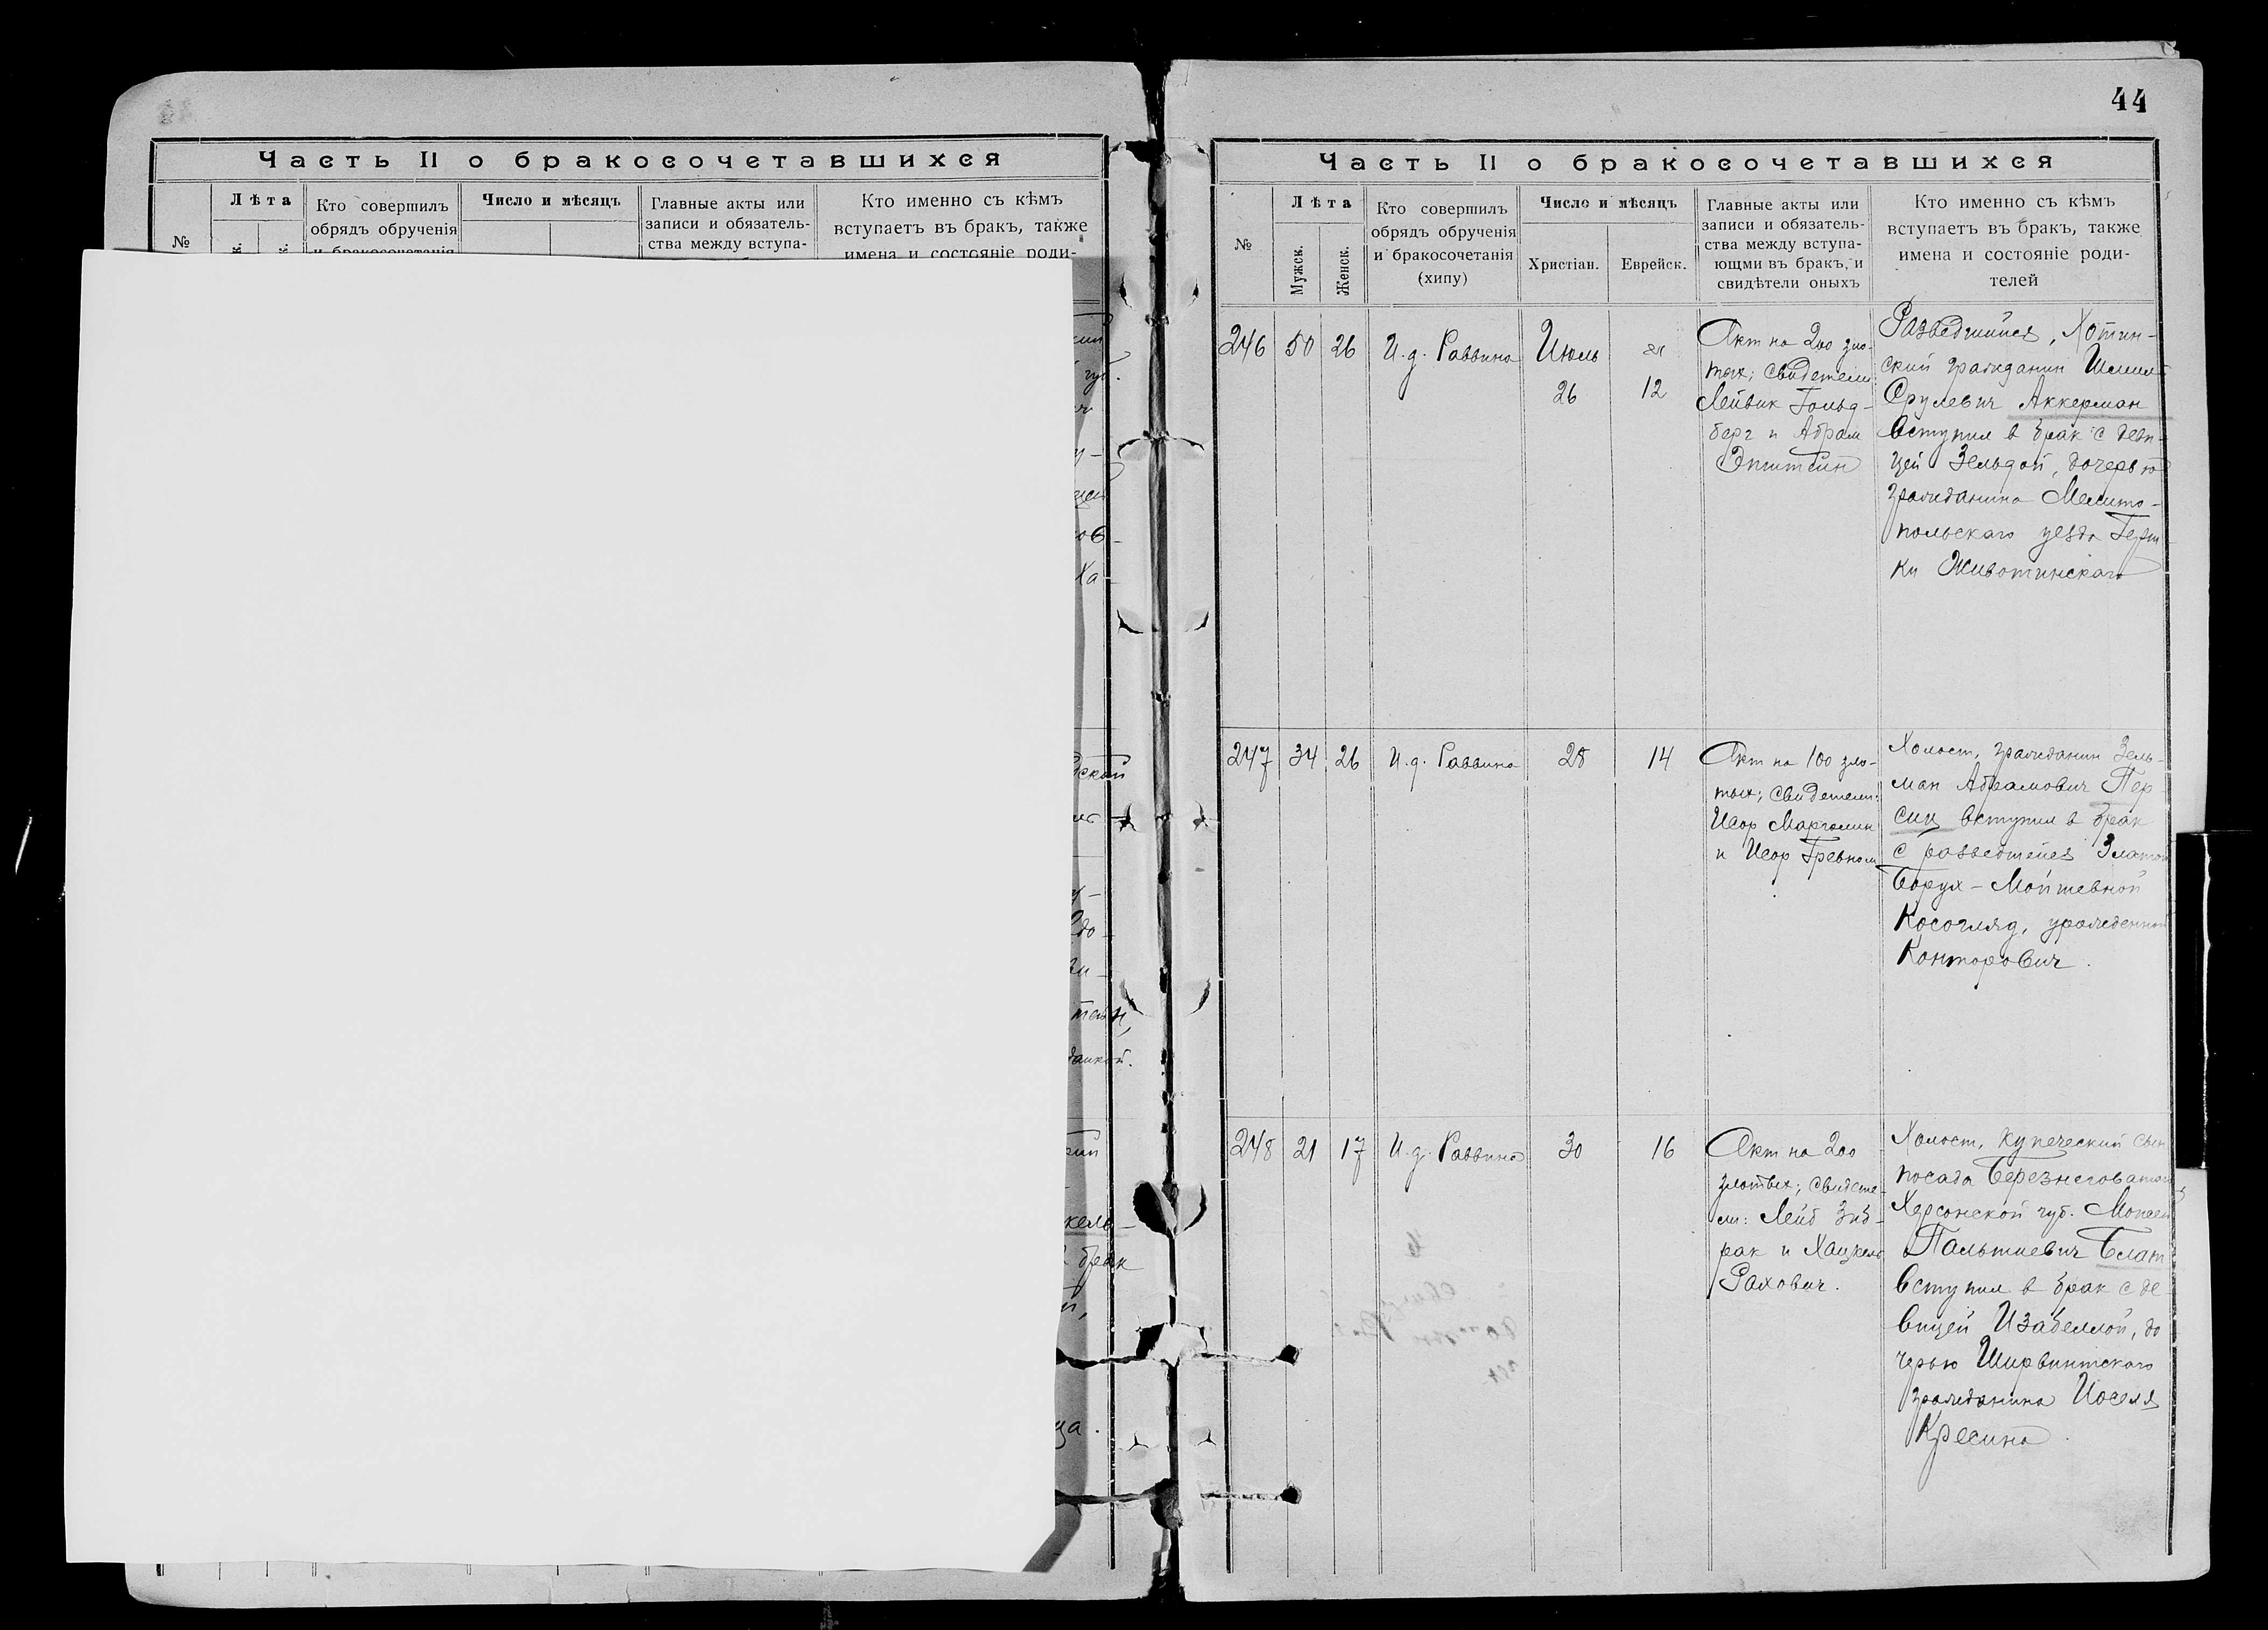 44
Часть II о бракосочетавшихся
№
Лѣта
Кто совершилъ
обрядъ обрученія
и бракосочетанія
Число и мѣсяцъ
Главные акты или
записи и обязатель-
ства между вступа-
Кто именно съ кѣмъ
вступаетъ въ бракъ, также
имена и состояніе роди-
брак
Часть II о бракосочетавшихся
№
Лѣта
Мужск.
Женск.
Кто совершилъ
обрядъ обрученія
и бракосочетанія
(хипу)
Число и мѣсяцъ
Христіан.
Еврейск.
Главные акты или
записи и обязатель-
ства между вступа-
ющми въ бракъ, и
свидѣтели оныхъ
Кто именно съ кѣмъ
вступаетъ въ бракъ, также
имена и состояніе роди-
телей
246
50
26
И.д. Раввина
Июль
26
12
Акт на 200 зло-
тых; свидетели
Лейвик Гольд-
берг и Абрам
Эпштейн
Разведшийся, Хотин-
ский гражданин Шмил
Срулевич Аккерман
вступил в брак с деви-
цей Зельдой, дочерью
гражданина Мелито-
польскаго уезда Герш
ки Животинскаго
247
34
26
И.д. Раввина
28
14
Акт на 100 зло-
тых; свидетели:
Исор Марголин
и Исор
Холост, гражданин Зель-
ман Абрамович Пер
сиц вступил в брак
с разведшейся Златой
Борух-Мойшевной
Косогляд, урожденной
Конторович.
248
21
17
И.д. Раввина
30
16
Акт на 200
злотых; свидете-
ли: Лейб Зиб-
рак и Хацкель
Рахович.
Холост, купеческий сын
посада Березнеговатого
Херсонской губ. Моисей
Пальтиевич Блат
вступил в брак с де
вицей Изабеллой, до
черью Ширвинтского
гражданина Иоселя
Кресина